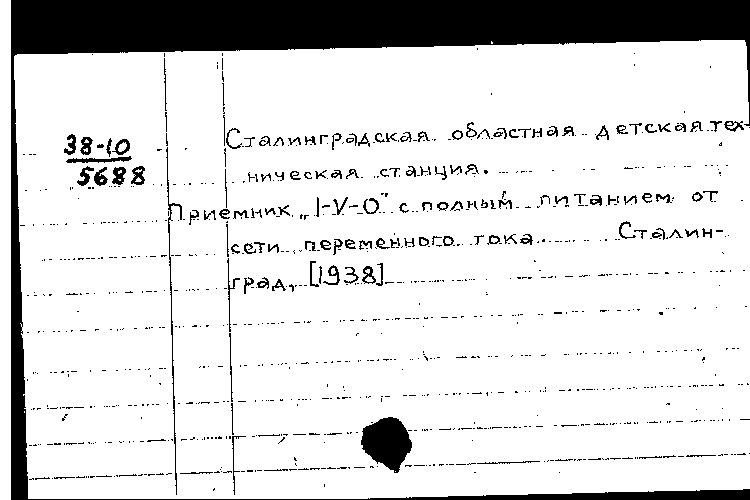 38-10
5688
Сталинградская областная детская тех-
ническая станция.
Приемник „1-V-0" с полным питанием от
сети переменного тока. Сталин-
град, [1938]